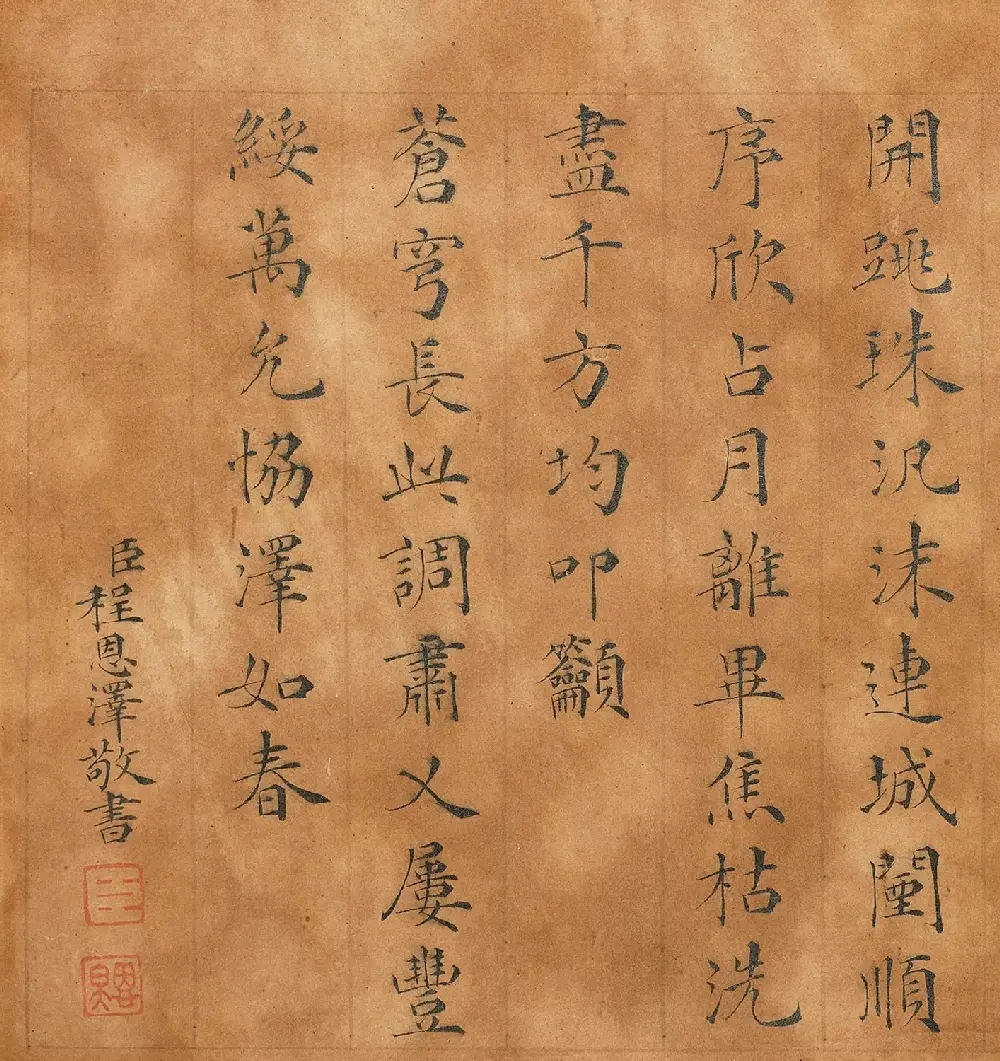 開跳珠汎沫連城闉順
序欣占月離畢焦枯洗
盡千方均叩籲
蒼穹長此調肅乂屢豐
綏萬允協澤如春
臣程恩澤敬書